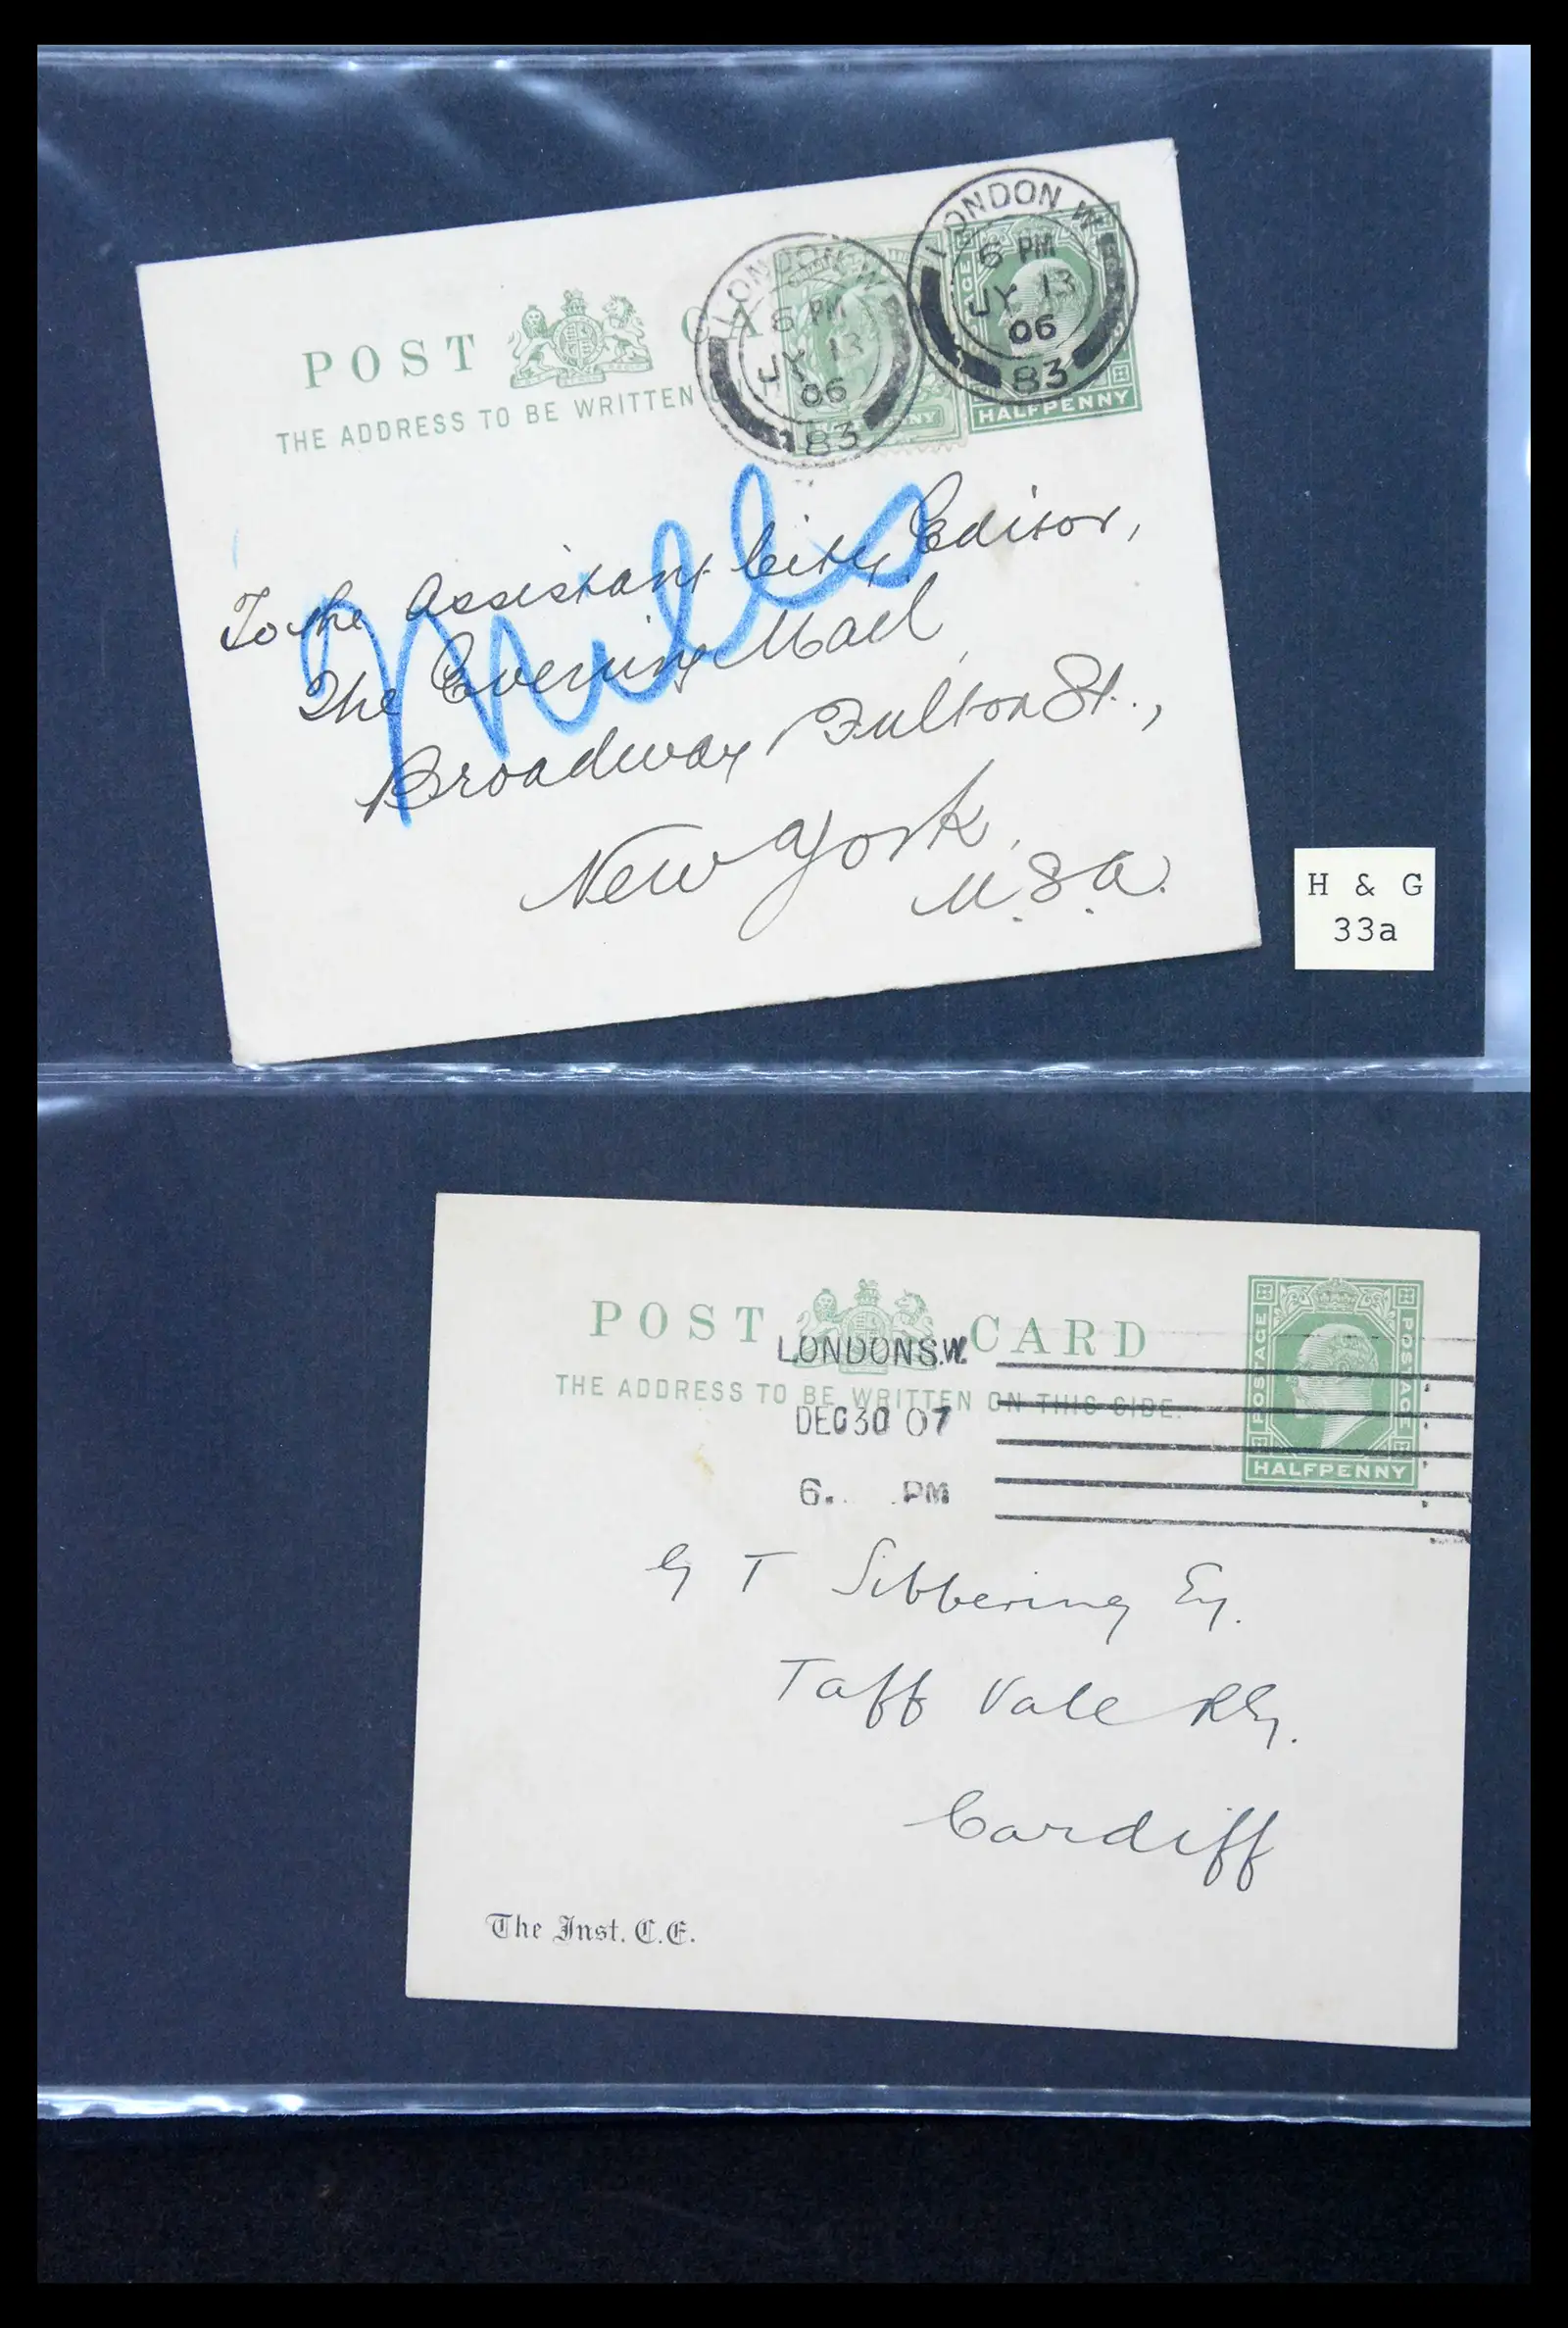 POST CA
THE ADDRESS TO BE WRITTEN
LONDON W
6 PM
JY 13
06
83
LONDON W
6 PM
JY 13
06
83
HALFPENNY
To the Assistant City Editor,
The Evening Mail
Broadway Fulton St.,
New York,
U.S.A.
H & G
33a
POST CARD
THE ADDRESS TO BE WRITTEN ON THIS SIDE.
LONDON S.W.
DEC 30 07
6. PM
POSTAGE
POSTAGE
HALFPENNY
G T Sibbering Esq.
Taff Vale Rly.
Cardiff
The Inst. C.E.